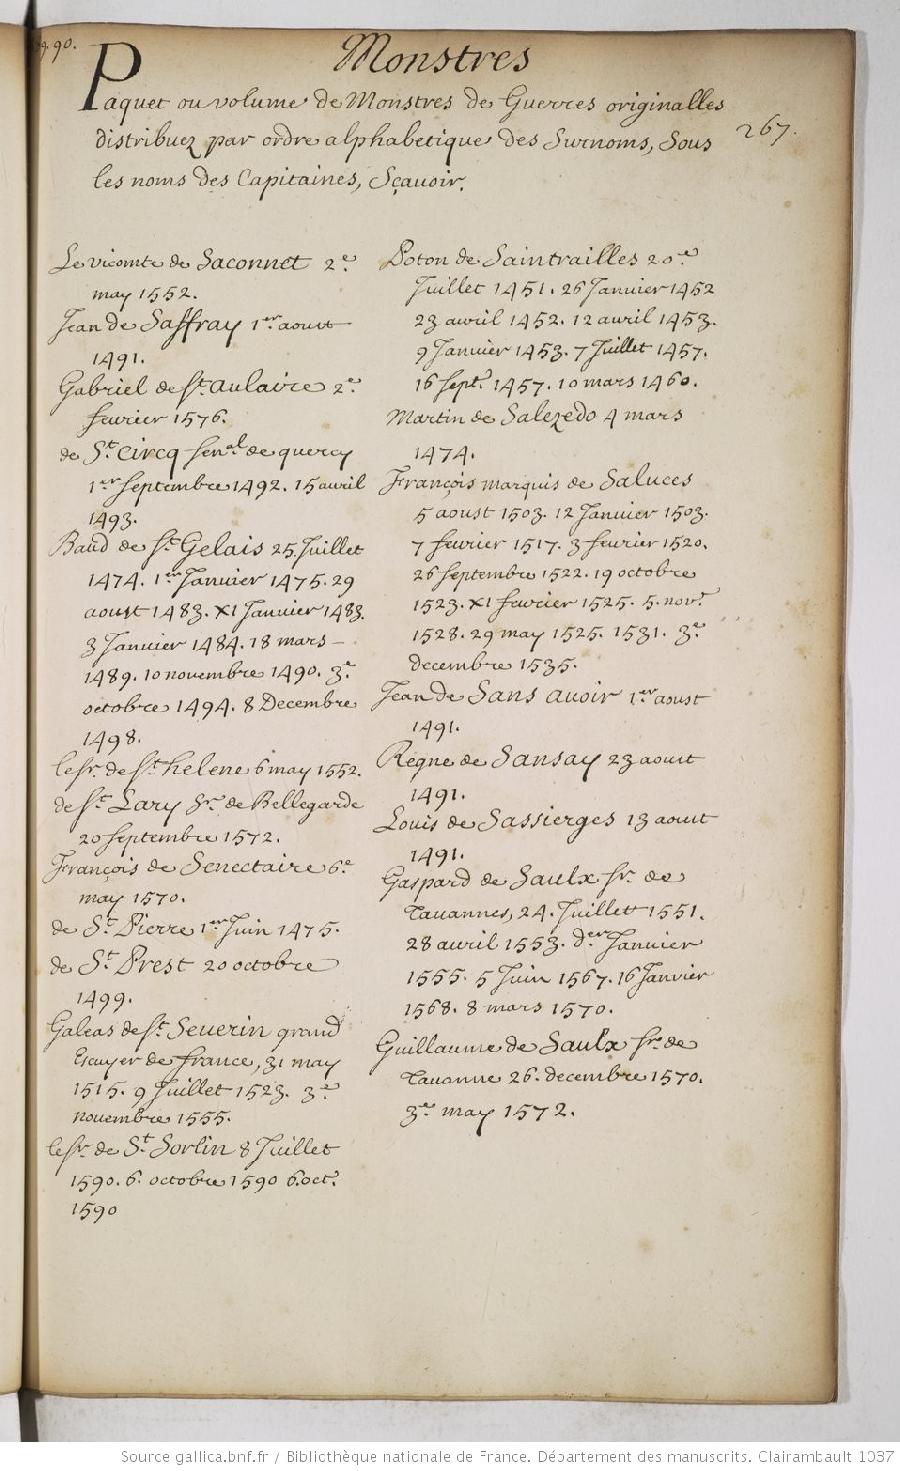 90.
Monstres
Paquet ou volume de Monstres de Guerres originalles
distribuez par ordre alphabetique des Surnoms, Sous
267.
les noms des Capitaines, Sçauoir.
Le vicomte de Saconnet 2.e
may 1552.
Jean de Saffray 1.er aoust
1491.
Gabriel de St. aulaire 2.e
feurier 1576.
de St. Circq sen.al de quercy
1.er septembre 1492. 15 auril
1493.
Baud de St. Gelais 25 Juillet
1474. 1.er Januier 1475. 29
aoust 1483. XI Januier 1483.
3 Januier 1484. 18 mars
1489. 10 nouembre 1490. 3.e
octobre 1494. 8 Decembre
1498.
le Sr. de St. helene 6 may 1552.
de St. Lary Sr. de Bellegarde
20 septembre 1572.
François de Senectaire 6.e
may 1570.
de St. Pierre 1.er Juin 1475.
de St. Prest 20 octobre
1499.
Galeas de St. Seuerin grand
Escuyer de france, 31 may
1515. 9 Juillet 1523. 3.e
nouembre 1555.
le Sr. de St. Sorlin 8 Juillet
1590. 6. octobre 1590 6. oct.
1590
Poton de Saintrailles 20.e
Juillet 1451. 26 Januier 1452
23 auril 1452. 12 auril 1453.
9 Januier 1453. 7 Juillet 1457.
16 sept. 1457. 10 mars 1460.
Martin de Salezedo 4 mars
1474.
François marquis de Saluces
5 aoust 1503. 12 Januier 1503.
7 feurier 1517. 3 feurier 1520.
26 septembre 1522. 19 octobre
1523. XI feurier 1525. 5. nov.r
1528. 29 may 1525. 1531. 3.e
decembre 1535.
Jean de Sans auoir 1.er aoust
1491.
Regne de Sansay 23 aoust
1491.
Louis de Sassierges 13 aoust
1491.
Gaspard de Saulx Sr. de
Tauannes, 24. Juillet 1551.
28 auril 1553. d.er Januier
1555. 5 Juin 1567. 16 Januier
1568. 8 mars 1570.
Guillaume de Saulx Sr. de
Tauanne 26. decembre 1570.
3.e may 1572.
Source gallica.bnf.fr / Bibliothèque nationale de France. Département des manuscrits. Clairambault 1037